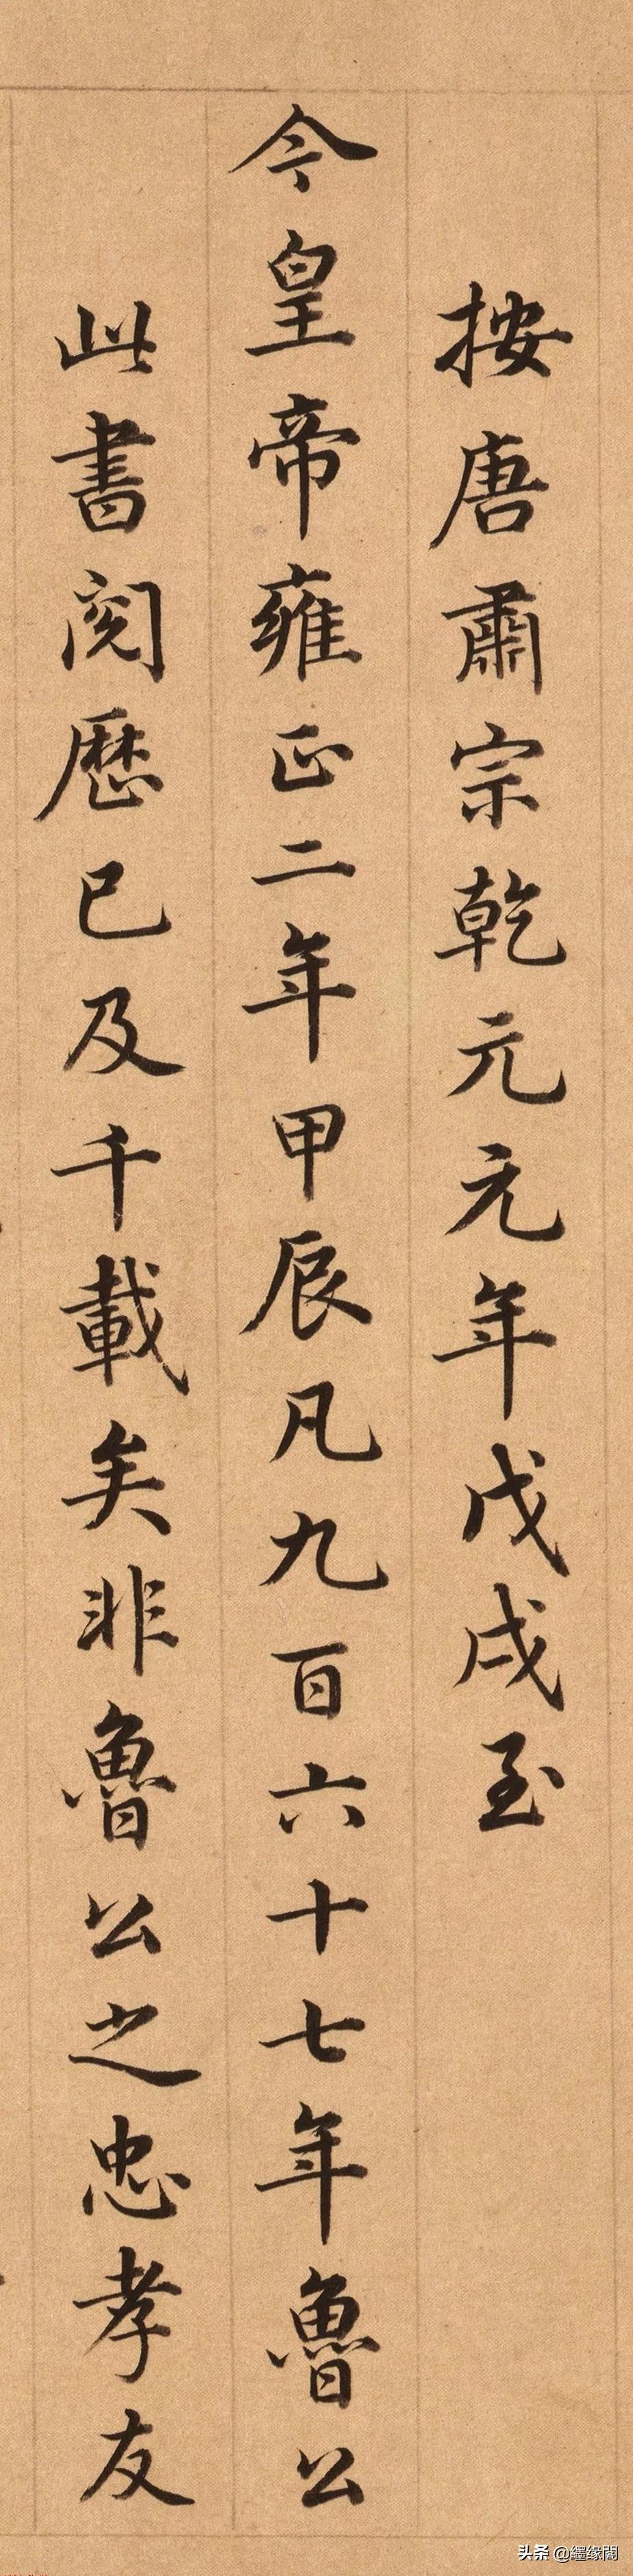 按唐肅宗乾元元年戊戌至
今皇帝雍正二年甲辰凡九百六十七年魯公
此書閱歷已及千載矣非魯公之忠孝友
头条 @纆缘閣